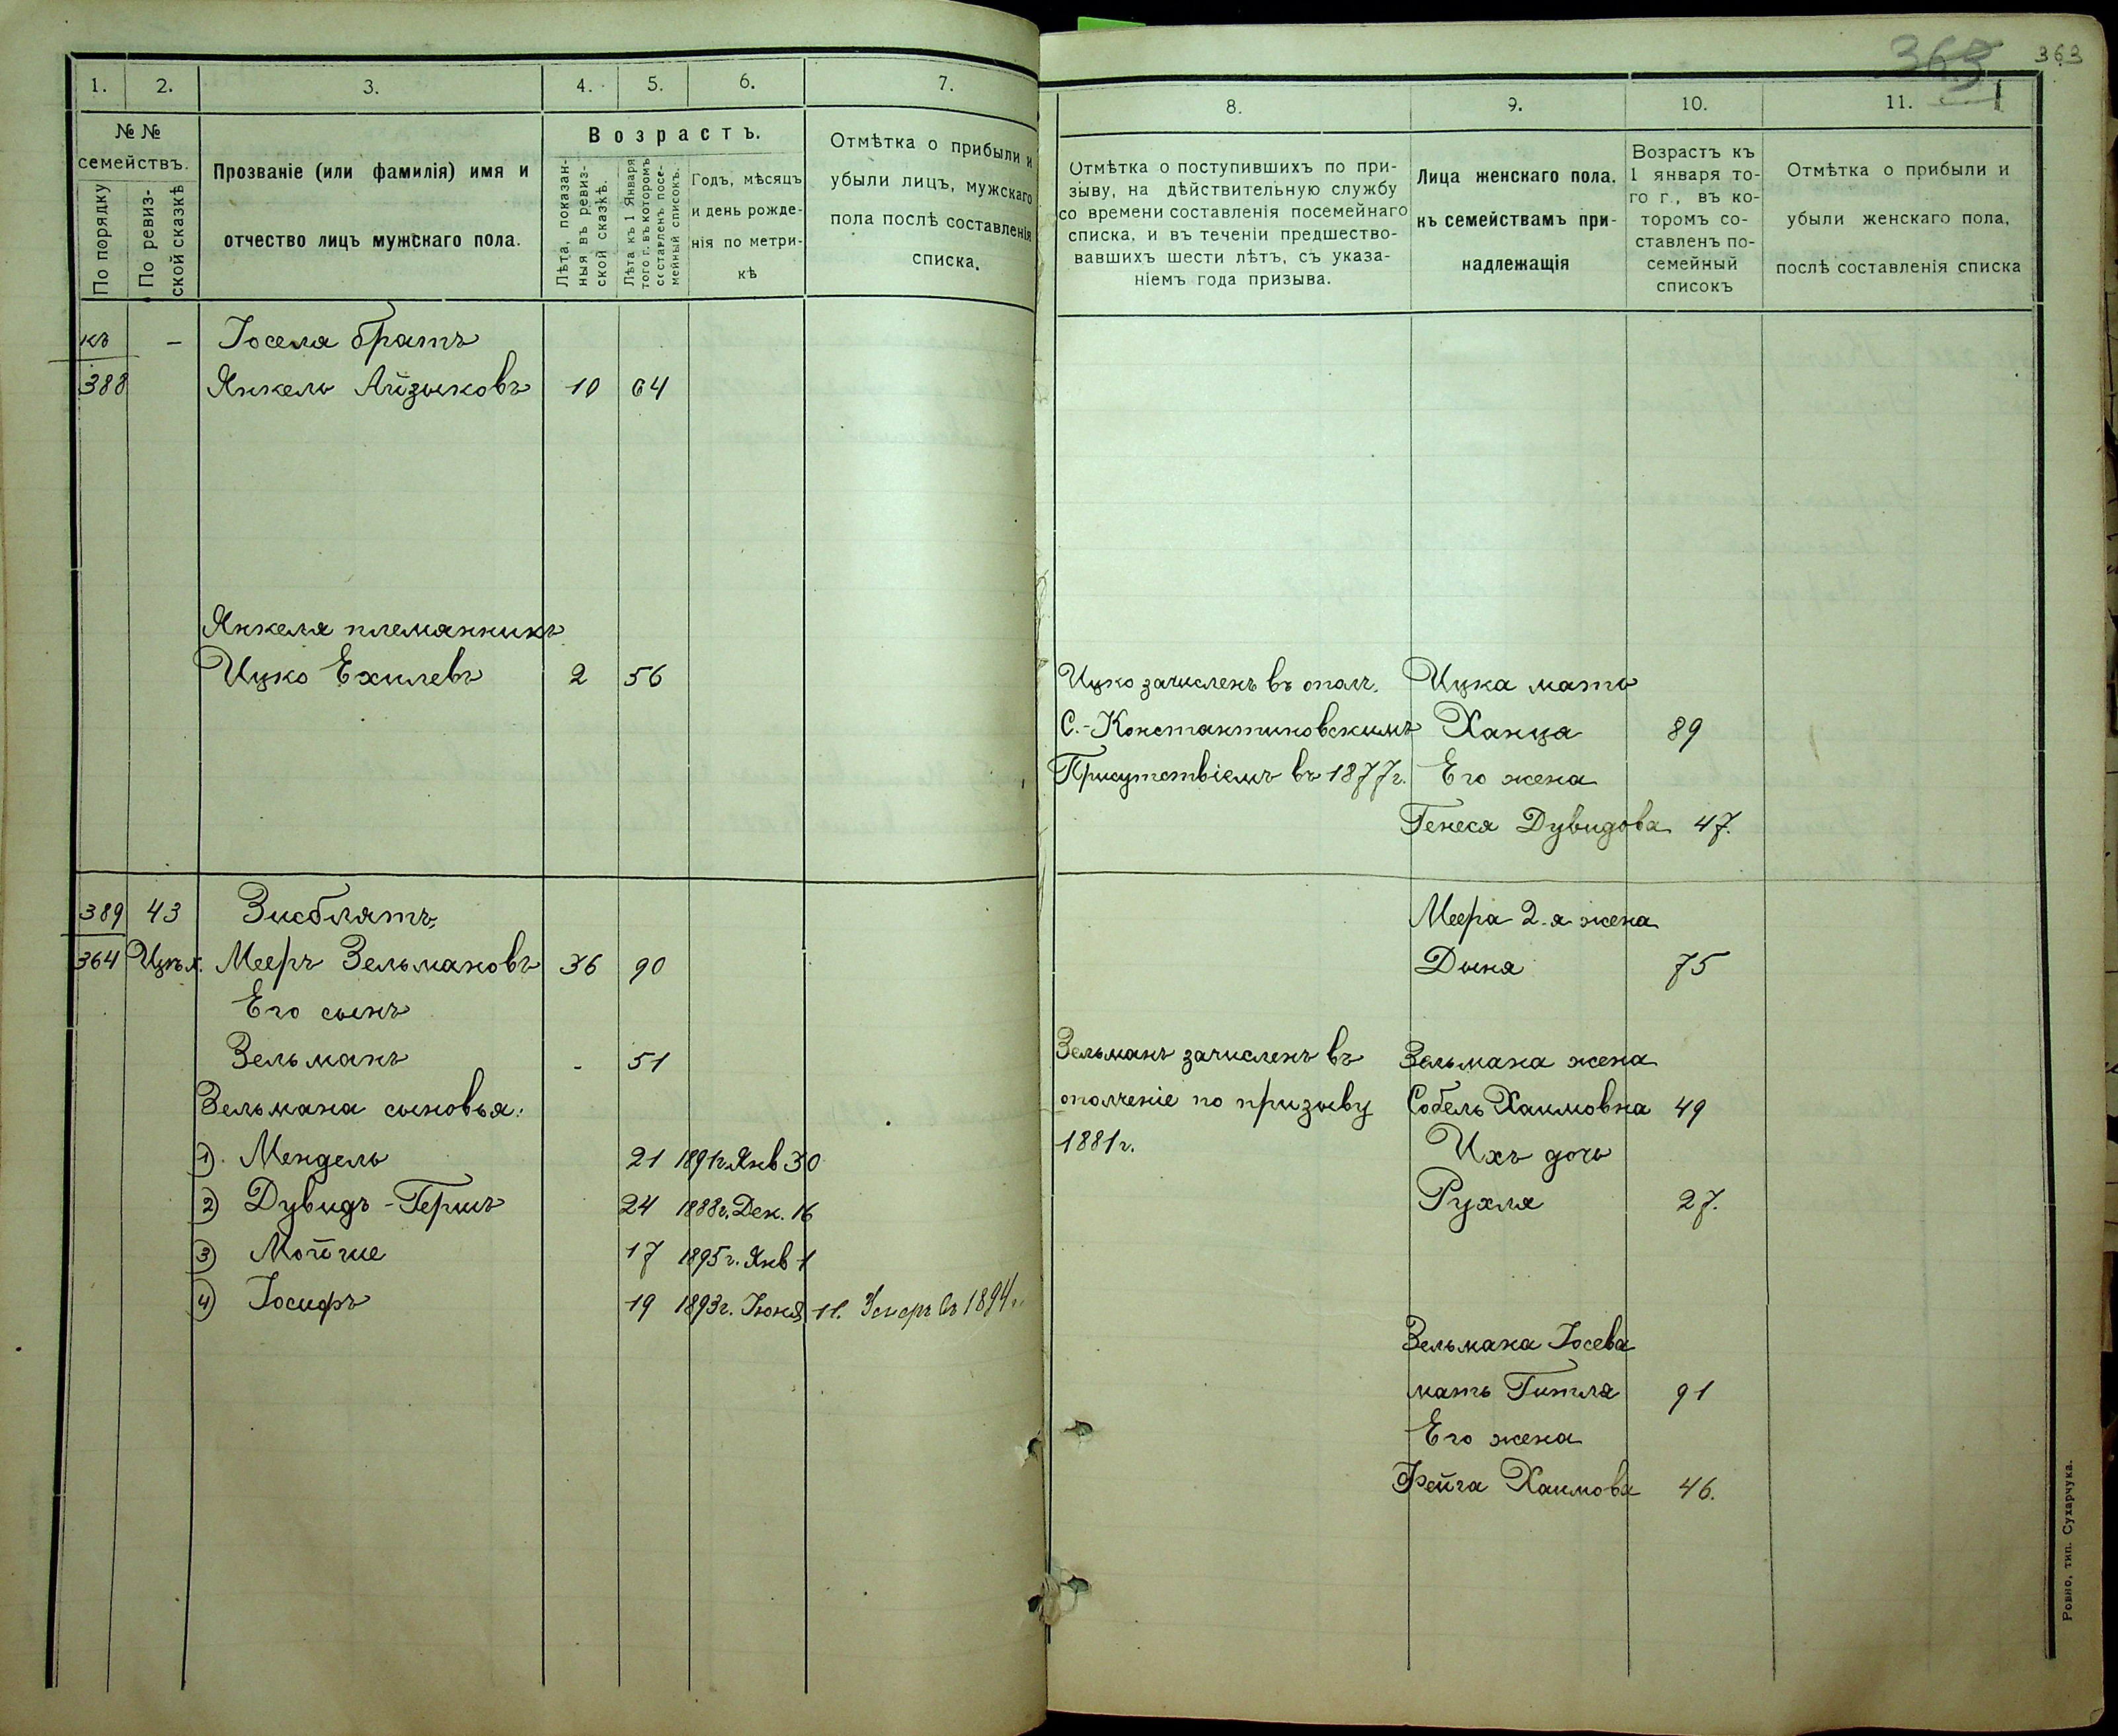 363
363
1
1.
2.
3.
4.
5.
6.
7.
№ №
семействъ.
По порядку
По ревиз-
ской сказкѣ
Прозваніе (или фамилія) имя и
отчество лицъ мужскаго пола.
Возрастъ.
Лѣта, показан-
ныя въ ревиз-
ской сказкѣ.
Лѣта къ 1 Января
того г. въ которомъ
составленъ посе-
мейный списокъ.
Годъ, мѣсяцъ
и день рожде-
нія по метри-
кѣ
Отмѣтка о прибыли и
убыли лицъ, мужскаго
пола послѣ составленія
списка.
къ - Іосела братъ
388 Янкель Айзыковъ 10 64
Янкеля племянникъ
Ицко Ехилевъ 2 56
389 43 Зисблятъ,
364 Мееръ Зельмановъ 36 90
Его сынъ
Зельманъ - 51
Зельмана сыновья:
1) Мендель 21 1891г. Янв 30
2) Дувидъ-Гершъ 24 1888г. Дек. 16
3) Мойше 17 1895г. Янв 1
4) Іосифъ 19 1893г. Іюня 11. Умеръ въ 1894г.
8.
9.
10.
11.
Отмѣтка о поступившихъ по при-
зыву, на дѣйствительную службу
со времени составленія посемейнаго
списка, и въ теченіи предшество-
вавшихъ шести лѣтъ, съ указа-
ніемъ года призыва.
Лица женскаго пола.
къ семействамъ при-
надлежащія
Возрастъ къ
1 января то-
го г., въ ко-
торомъ со-
ставленъ по-
семейный
списокъ
Отмѣтка о прибыли и
убыли женскаго пола,
послѣ составленія списка
Ицко зачисленъ въ опол. Ицка мать
С.-Константиновскимъ Ханца 89
Присутствіемъ въ 1877г. Его жена
Генеся Дувидова 47.
Меера 2-я жена
Дыня 75
Зельманъ зачисленъ въ Зельмана жена
ополченіе по призыву Собель Хаимовна 49
1881г. Ихъ дочь
Рухля 27.
Зельмана Іосева
мать Гитля 91
Его жена
Фейга Хаимова 46.
Ровно, тип. Сухарчука.